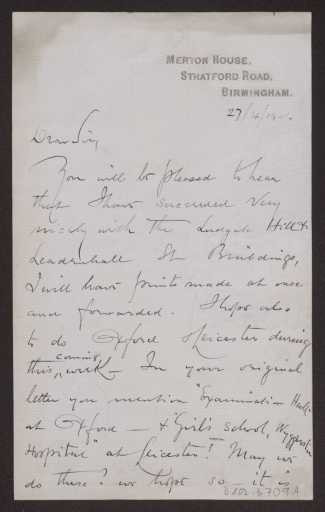 MERTON HOUSE,
STRATFORD ROAD,
BIRMINGHAM.
Dear Sir,
You will be pleased to hear
that I have succeeded very
nicely with the Ludgate Hill &
Leadenhall St Buildings,
I will have prints made at once
and forwarded. I hope also
to do Oxford Leicester during
this coming week – In your original
letter you mention "Examination Hall"
at Oxford – & "Girl's School, Wyggeston
Hospital" at Leicester! May we
do these? we hope so – it is